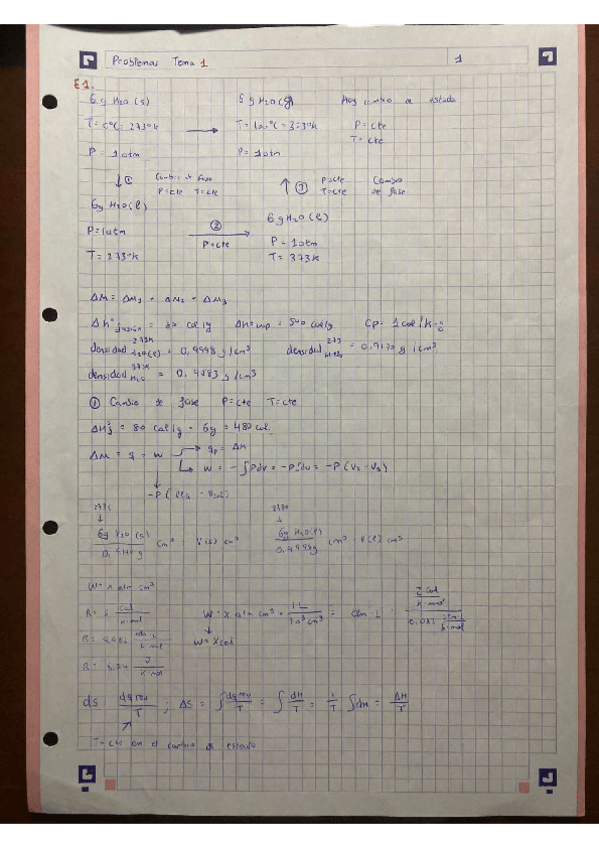 Problemas Tema 1
1
E1.
6g H2O(s) 6g H2O(g) Hay cambio de estado
T= 0ºC= 273ºK → T= 100ºC = 373ºK P= cte
T= cte
P= 1atm P= 1atm
↓① Cambio de fase ↑③ P=cte Cambio
P=cte T=cte T=cte de fase
6g H2O(l) 6g H2O(l)
P=1atm ② → P= 1atm
P=cte
T= 273ºK T= 373K
ΔH = ΔH1 + ΔH2 + ΔH3
ΔHº fusión = 80 cal/g ΔHº = 540 cal/g Cp= 1 cal/K·g
densidad 273K H2O(l) = 0,9998 g/cm³ densidad 273 = g/cm³
densidad 373K H2O = 0,9583 g/cm³
① Cambio de fase P=cte T=cte
= 80 cal/g · 6g = 480 cal
= q = w qp = ΔH
w = -∫Pdv = -P∫dv = -P(V2 - V1)
-P(
273K
6g H2O(s) / cm³ = V(s) cm³ 6g H2O(l) / 0,9998g cm³ = V(l) cm³
w= x atm cm³
R= 2 cal / K·mol w= x atm cm³ · 1L / 10³cm³ = atm·L · 2 cal / K·mol / 0,082 atm·L / K·mol
R= 0,082 atm·L / K·mol w= x cal
R= J / K·mol
ds = dq rev / T ; ΔS = ∫ dq rev / T = ∫ dH / T = 1 / T ∫dH = ΔH / T
T=cte en el cambio de estado